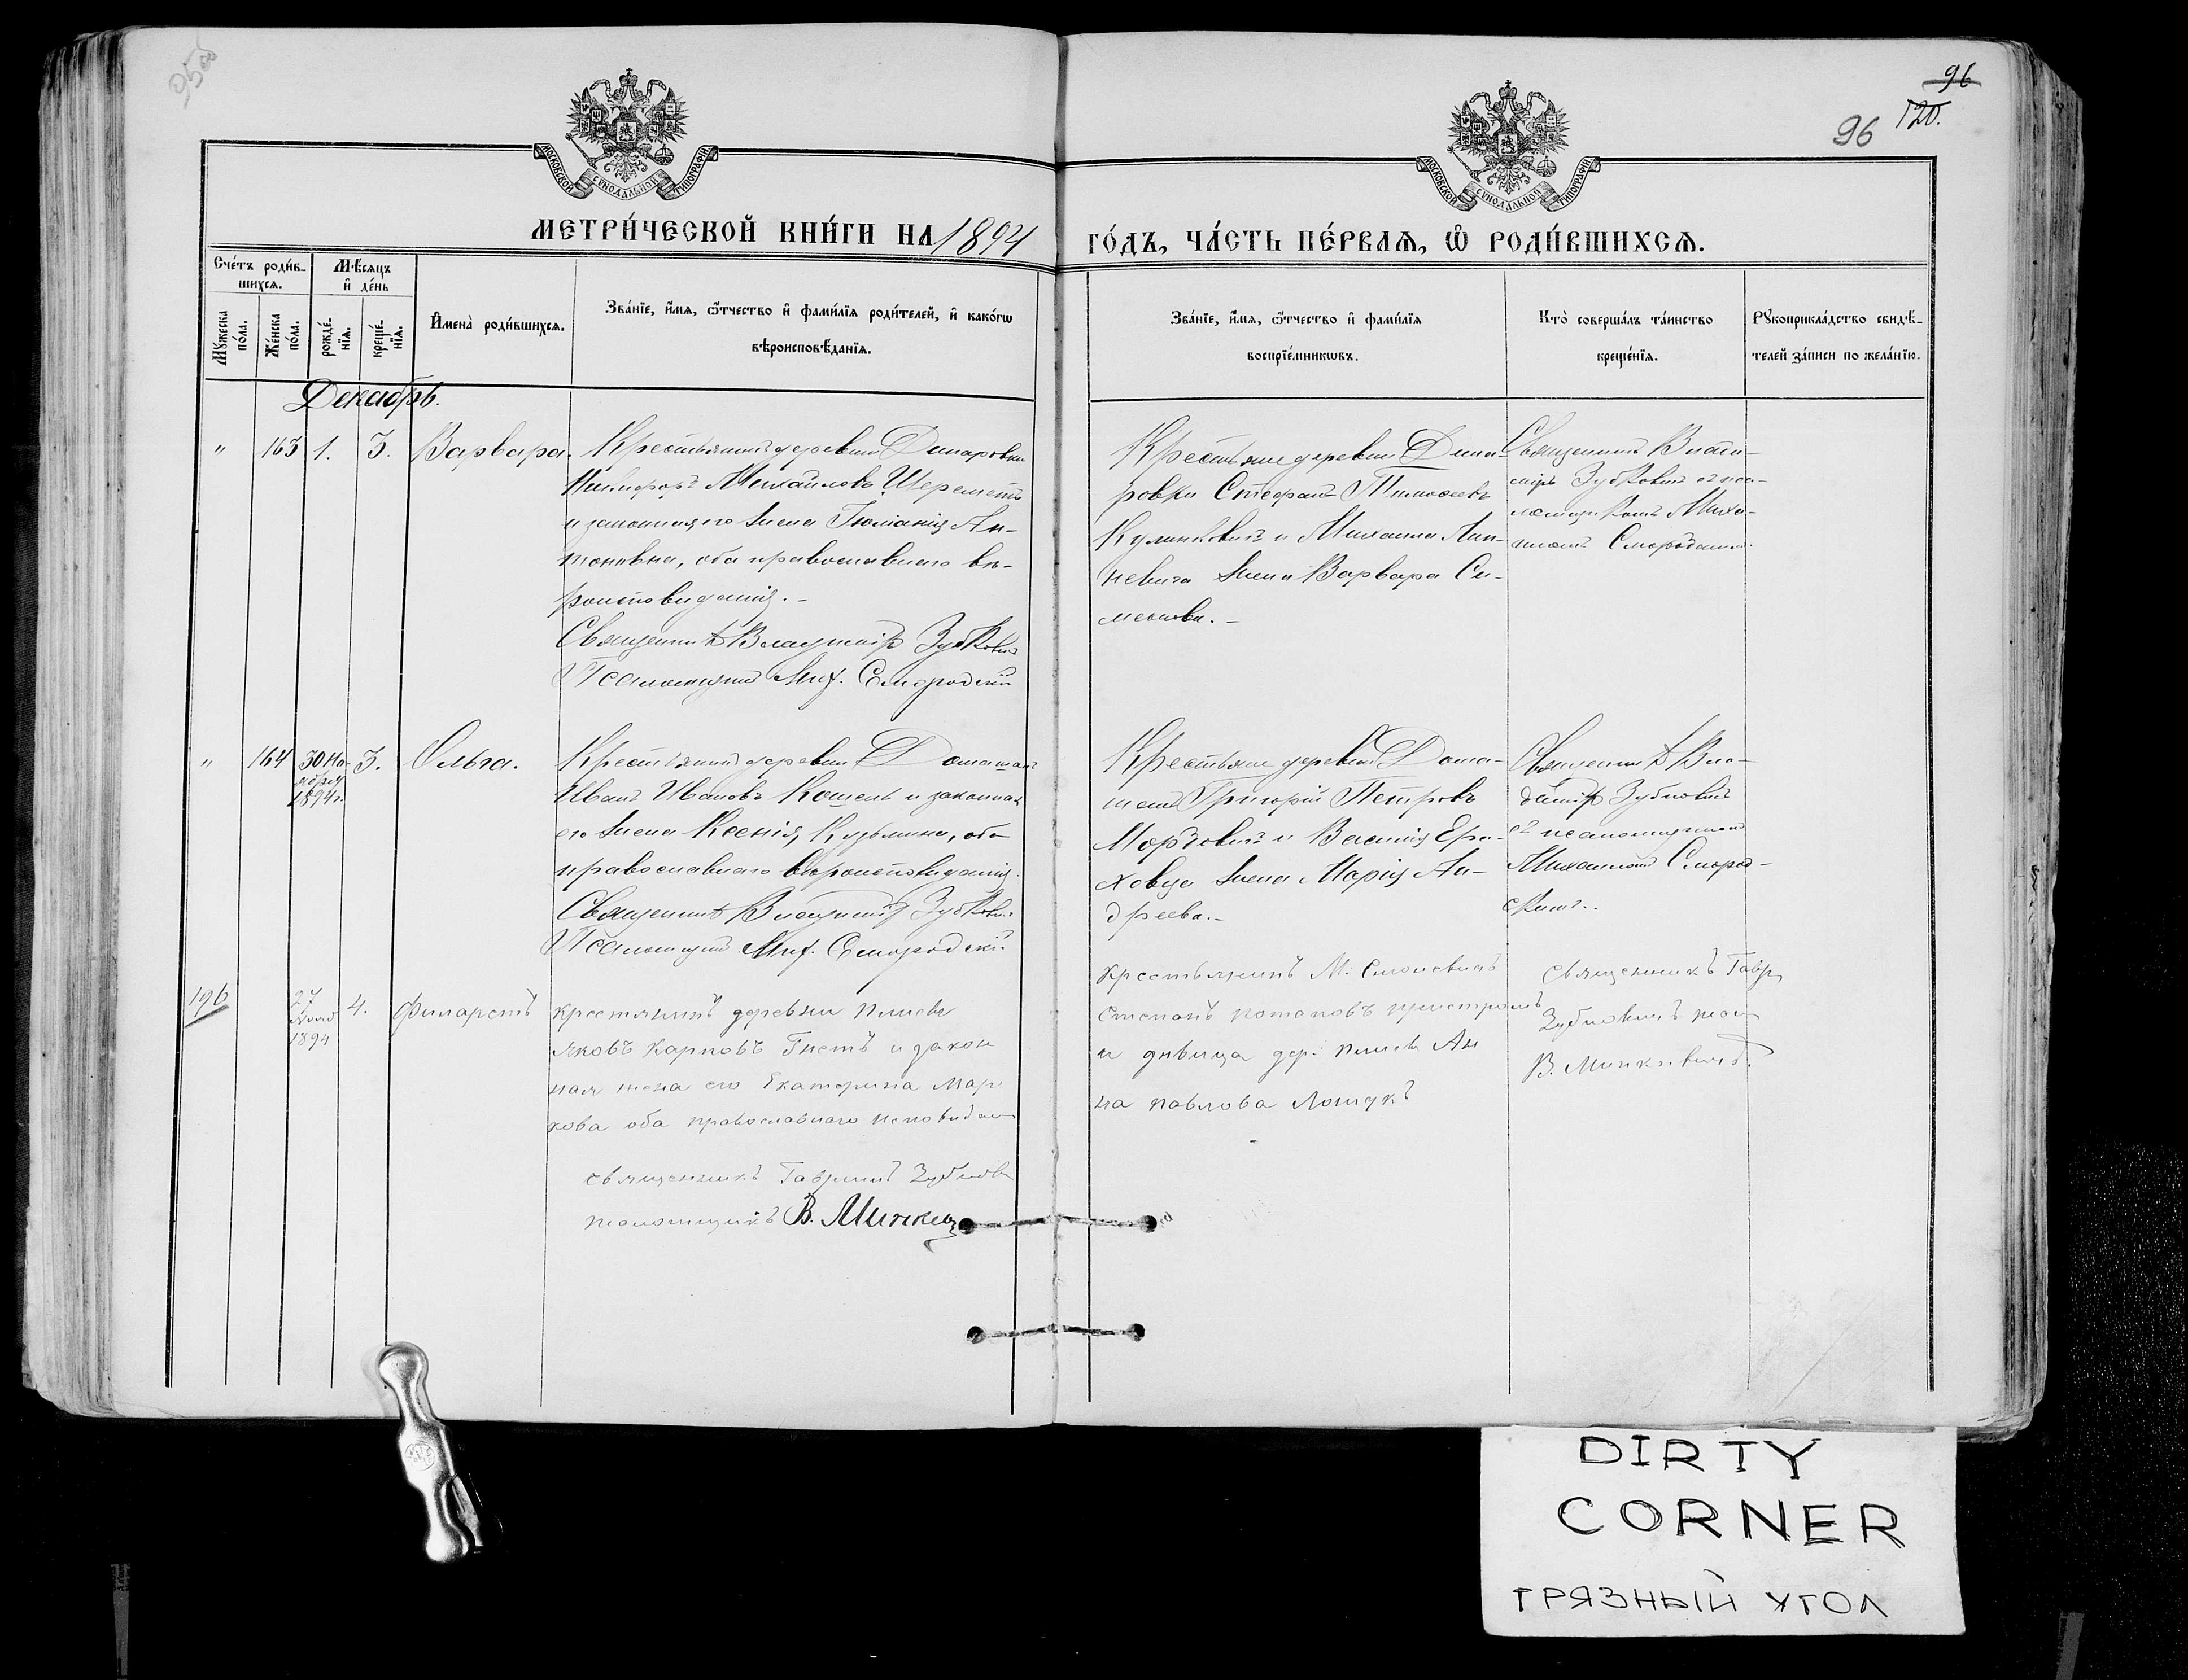 95об
96
120.
96
МОСКОВСКОЙ СѴНОДАЛЬНОЙ ТИПОГРАФІИ
МОСКОВСКОЙ СѴНОДАЛЬНОЙ ТИПОГРАФІИ
МЕТРИ́ЧЕСКОЙ КНИ́ГИ НА 1894 ГО́ДЪ, ЧА́СТЬ ПЕ́РВАѦ, Ѽ РОДИ́ВШИХСѦ.
Сче́тъ роди́в-
шихсѧ.
Мѣ́сѧцъ
и҆ де́нь
Мꙋ́жеска по́ла.
Же́нска по́ла.
рожде́-
нїѧ.
креще́-
нїѧ.
И҆мена̀ роди́вшихсѧ.
Зва́нїе, и҆́мѧ, ѻ҆́тчество и҆ фами́лїѧ роди́телей, и҆ како́гѡ
вѣроисповѣ́данїѧ.
Зва́нїе, и҆́мѧ, ѻ҆́тчество и҆ фами́лїѧ
воспрїе́мникѡвъ.
Кто̀ соверша́лъ та́инство
креще́нїѧ.
Рꙋкоприкла́дство свидѣ́-
телей за́писи по жела́нїю.
Декабрь.
" 163 1. 3. Варвара.
Крестьянинъ деревни Динаровки
Никифоръ Михайловъ Шереметъ
и законная его жена Іюліанія Ан-
тоновна, оба православнаго вѣ-
роисповѣданія.-
Священникъ Владиміръ Зубковичъ
Псаломщикъ Мих. Смородскій
Крестьяне деревни Дина-
ровки Стефанъ Тимофеевъ
Кулинковичъ и Михаила Лин-
невича жена Варвара Си-
меонова.-
Священникъ Влади-
міръ Зубковичъ съ псал-
омщикомъ Миха-
иломъ Смородскимъ.
" 164 30 Но-
ября
1894г. 3. Ольга.
Крестьянинъ деревни Домашъ
Иванъ Ивановъ Кошель и законная
его жена Ксенія Кузьмина, оба
православнаго вѣроисповѣданія.
Священникъ Владиміръ Зубковичъ
Псаломщикъ Мих. Смородскій.
Крестьяне деревни Дома-
шъ Григорій Петровъ
и Василія Ера-
ховца жена Марія Ан-
дреева.-
Священникъ Вла-
диміръ Зубковичъ
съ псаломщикомъ
Михаиломъ Смород-
скимъ.-
196 27
1894 4. Филаретъ
крестьянинъ деревни
Яковъ Карповъ Гнетъ и закон
ная жена его Екатерина Мар
кова оба православнаго исповѣдан
священникъ Гавриилъ Зубкович
псаломщикъ В. Минкевич
крестьянинъ М.
Степанъ Потаповъ
и дѣвица дер. Ан
на Павлова Лощукъ
священникъ Гавр
Зубковичъ псал
В. Минкевичъ.
DIRTY
CORNER
ГРЯЗНЫЙ УГОЛ